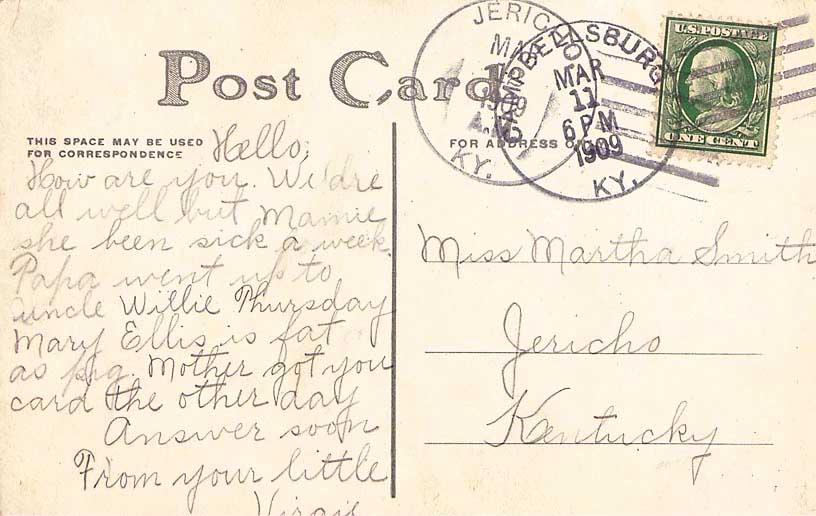 Post Card
THIS SPACE MAY BE USED
FOR CORRESPONDENCE
Hello,
How are you. We'dre
all well but Mamie
she been sick a week.
Papa went up to
uncle Willie Thursday
Mary Ellis is fat
as pig. Mother got you
card the other day
Answer soon
From your little
Virgie
FOR ADDRESS
JERICHO
KY.
CAMPBELLSBURG
MAR
11
6 PM
1909
KY.
U.S. POSTAGE
ONE CENT
Miss Martha Smith
Jericho
Kentucky